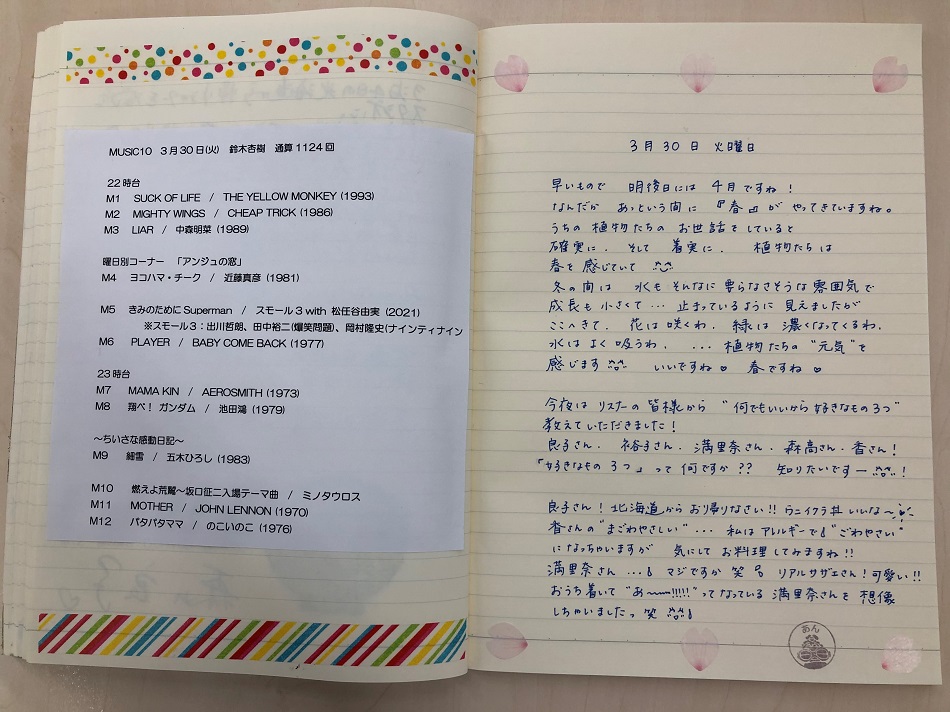 MUSIC10 3月30日(火) 鈴木杏樹 通算1124回
22時台
M1 SUCK OF LIFE / THE YELLOW MONKEY (1993)
M2 MIGHTY WINGS / CHEAP TRICK (1986)
M3 LIAR / 中森明菜 (1989)
曜日別コーナー 「アンジュの窓」
M4 ヨコハマ・チーク / 近藤真彦 (1981)
M5 きみのためにSuperman / スモール3 with 松任谷由実 (2021)
※スモール3：出川哲朗、田中裕二(爆笑問題)、岡村隆史(ナインティナイン
M6 PLAYER / BABY COME BACK (1977)
23時台
M7 MAMA KIN / AEROSMITH (1973)
M8 翔べ! ガンダム / 池田鴻 (1979)
～ちいさな感動日記～
M9 細雪 / 五木ひろし (1983)
M10 燃えよ荒鷲～坂口征二入場テーマ曲 / ミノタウロス
M11 MOTHER / JOHN LENNON (1970)
M12 パタパタママ / のこいのこ (1976)
3月30日 火曜日
早いもので 明後日には 4月ですね!
なんだか あっという間に 『春』が やってきていますね。
うちの 植物たちの お世話を していると
確実に、そして 着実に、 植物たちは
春を 感じていて
冬の間は 水も そんなに 要らなさそうな 雰囲気で
成長も 小さくて… 止まっているように 見えましたが
ここへきて、 花は 咲くわ、 緑は 濃くなってくるわ、
水は よく 吸うわ、 … 植物たちの "元気"を
感じます いいですね♡ 春ですね♡
今夜は リスナーの 皆様から "何でもいいから 好きなもの 3つ"
教えていただきました!
良子さん、 裕子さん、 満里奈さん、 森高さん、 香さん!
「好きなもの 3つ」って 何ですか?? 知りたいですー!
良子さん! 北海道から お帰りなさい!! ウニイクラ丼 いいな～
香さんの "まごわやさしい"… 私は アレルギーで "ごわやさい"
に なっちゃいますが 気にして お料理 してみますね!!
満里奈さん … マジですか 笑 リアルサザエさん! 可愛い!!
おうち着いて "あ〜!!!!!" ってなっている 満里奈さんを 想像
しちゃいましたっ 笑
あん